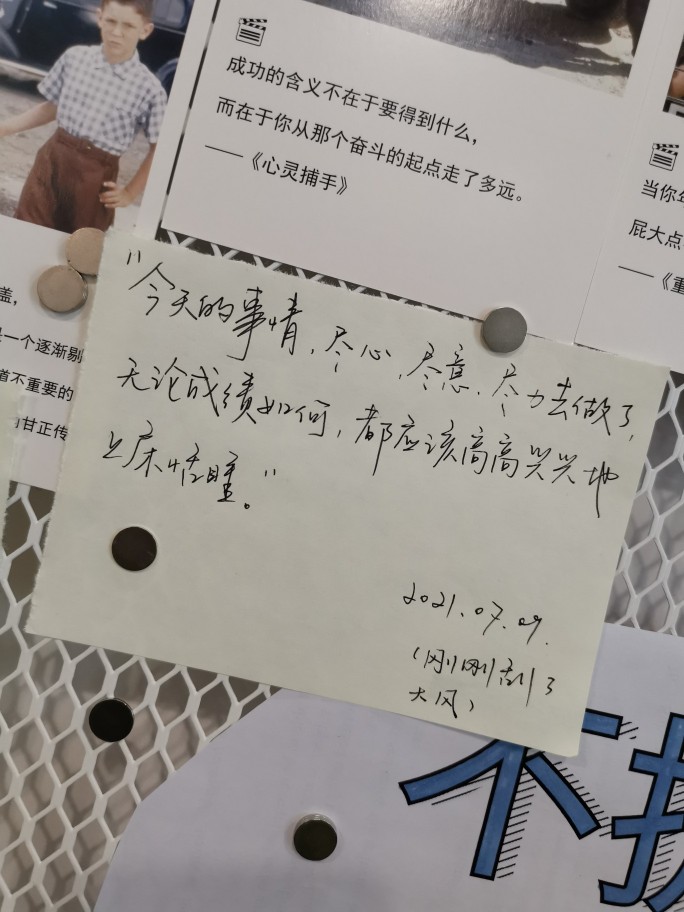 成功的含义不在于要得到什么，
而在于你从那个奋斗的起点走了多远。
——《心灵捕手》
当你
屁大点
——《重
盖，
一个逐渐剔
道不重要的
甘正传
"今天的事情，尽心，尽意，尽力去做了，
无论成绩如何，都应该高高兴兴地
上床恬睡。"
2021.07.09.
（刚刚刮了
大风）
不